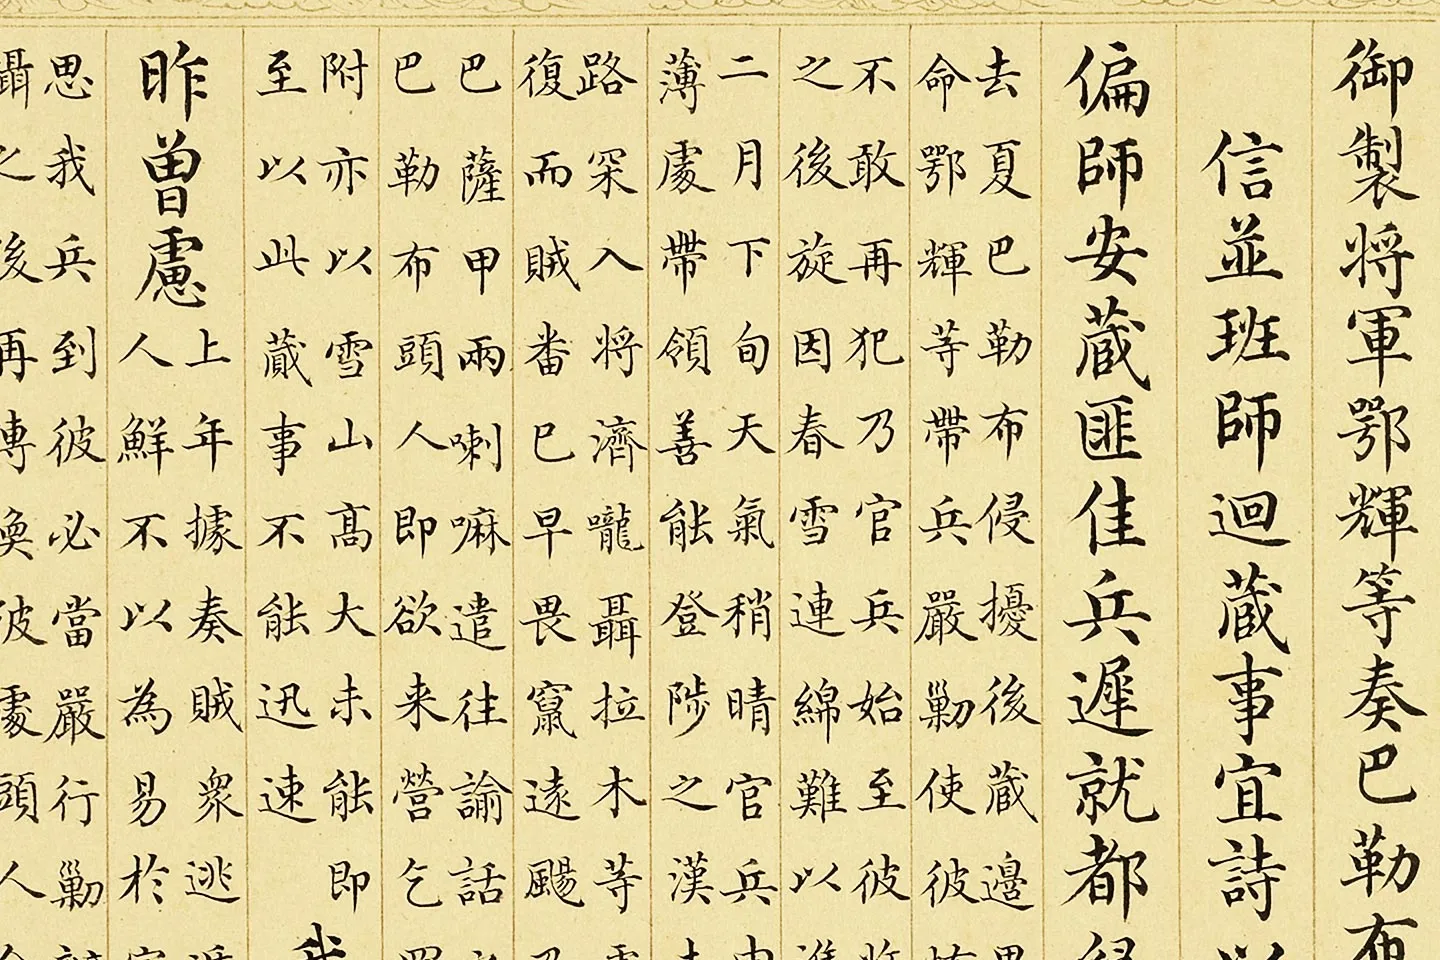 御製将軍鄂輝等奏巴勒布
信並班師迴蕆事宜詩以
偏師安蕆匪佳兵遲就都
去夏巴勒布侵擾後蔵邊
命鄂輝等帶兵嚴剿使彼
不敢再犯乃官兵始至彼
之後旋因春雪連綿難以進
二月下旬天氣稍晴官兵由
薄處帶領善能登陟之漢
路罙入将濟嚨聶拉木等
復而賊番巳早畏竄遠颺
巴薩甲兩喇嘛遣往諭話
巴勒布頭人即欲来營乞罪
附亦以雪山髙大未能即
至以此蕆事不能迅速
我
昨曾慮
上年據奏賊衆逃
人鮮不以為易於
思我兵到彼必當嚴行剿
聶之後再專彼處頭人